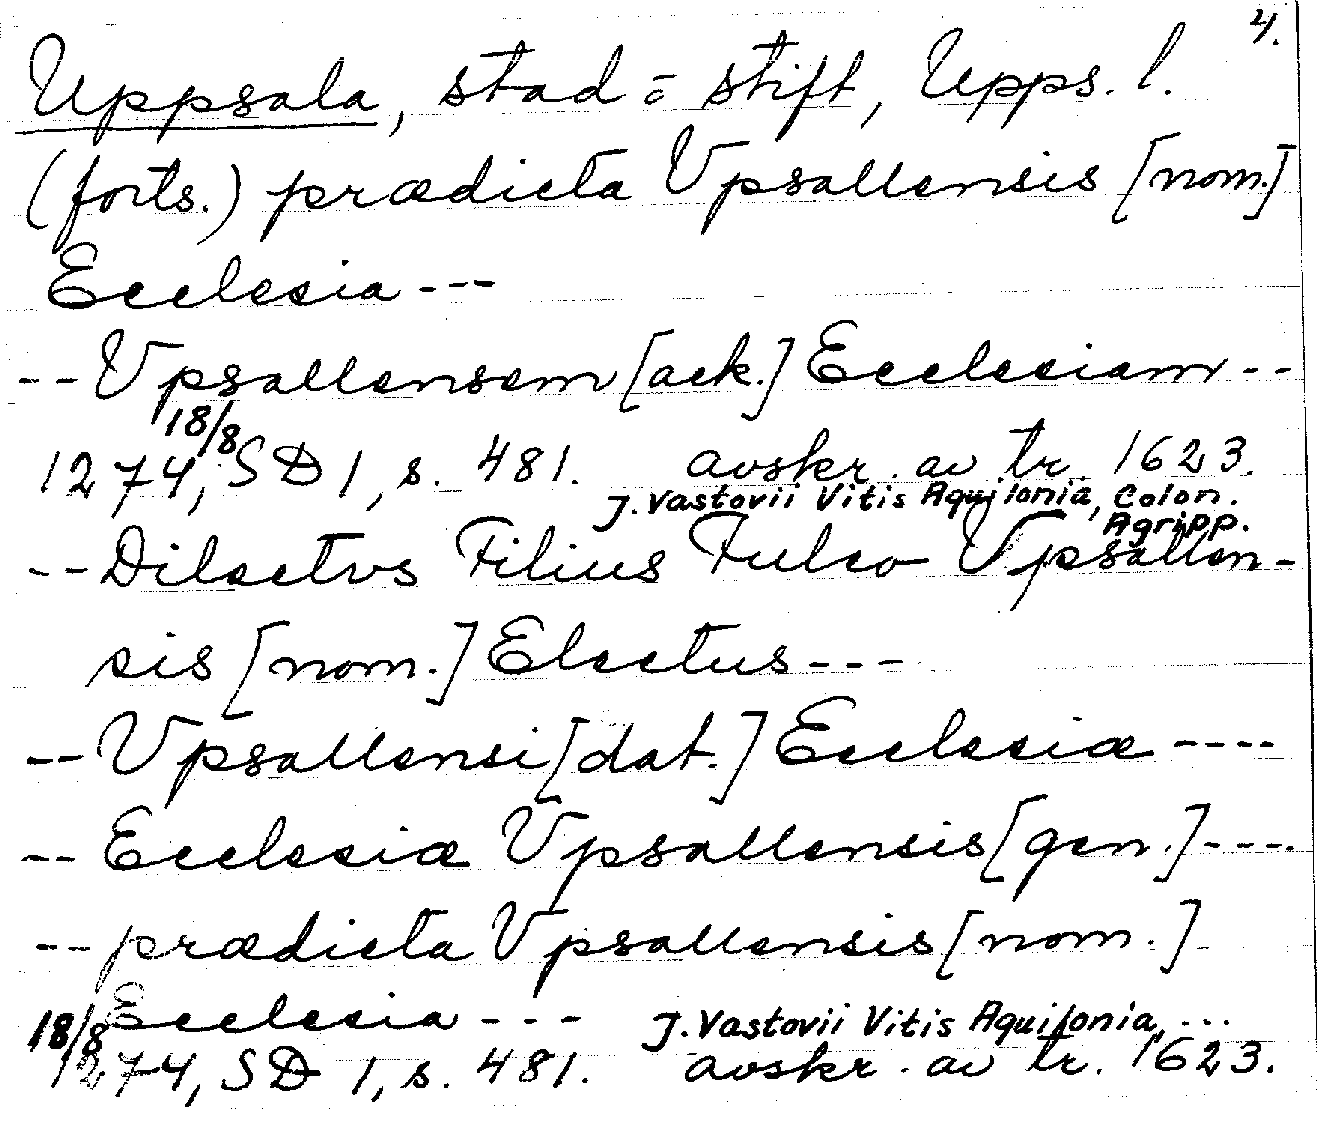 4.
Uppsala, stad = stift, Upps. l.
(forts.) prædicta Vpsallensis [nom.]
Ecclesia ---
-- Vpsallensem [ack.] Ecclesiam --
18/8
1274, SD 1, s. 481. avskr. av tr. 1623.
J. Vastovii Vitis Aquilonia, Colon.
Agripp.
-- Dilectvs Filius Fulco Vpsallen-
sis [nom.] Electus ---
-- Vpsallensi [dat.] Ecclesiæ ----
-- Ecclesiæ Vpsallensis [gen.] ----
-- prædicta Vpsallensis [nom.]
Ecclesia --- J. Vastovii Vitis Aquilonia, ...
18/8
1274, SD 1, s. 481. avskr. av tr. 1623.